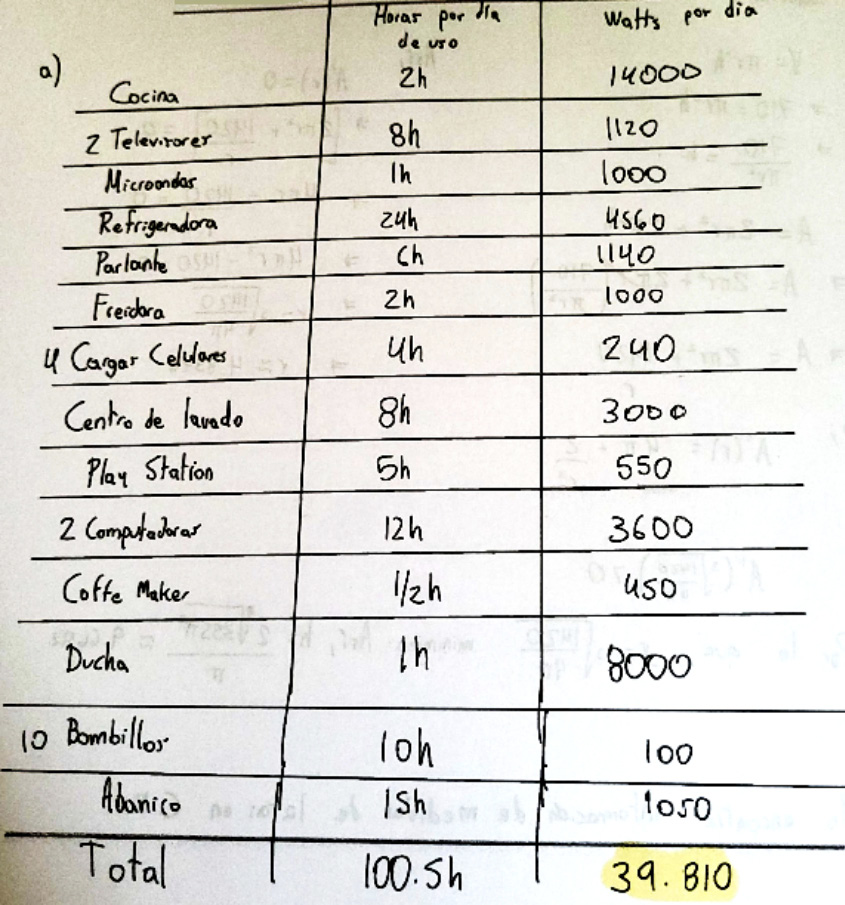 Horas por día
de uso
Watts por dia
a)
Cocina 2h 14000
2 Televisores 8h 1120
Microondas 1h 1000
Refrigeradora 24h 4560
Parlante 6h 1140
Freidora 2h 1000
4 Cargar Celulares 4h 240
Centro de lavado 8h 3000
Play Station 5h 550
2 Computadoras 12h 3600
Coffe Maker 1/2h 450
Ducha 1h 8000
10 Bombillos 10h 100
Abanico 15h 1050
Total 100.5h 39.810